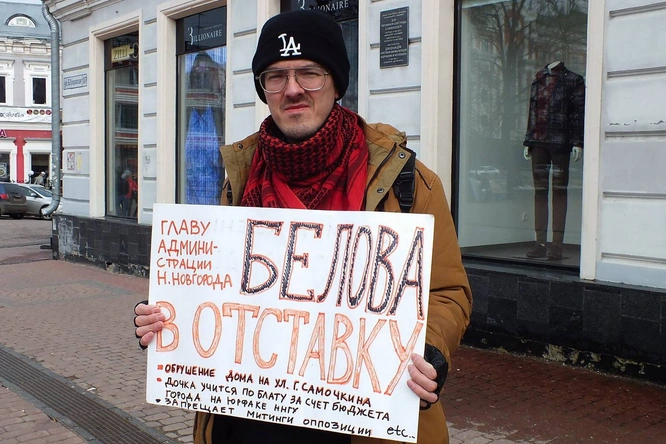 LA
BILLIONAIRE
BILLIONAIRE
ГЛАВУ
АДМИНИ-
СТРАЦИИ
Н.НОВГОРОДА
БЕЛОВА
В ОТСТАВКУ
• ОБРУШЕНИЕ ДОМА НА УЛ. Г. САМОЧКИНА
• ДОЧКА УЧИТСЯ ПО БЛАТУ ЗА СЧЕТ БЮДЖЕТА
ГОРОДА НА ЮРФАКЕ ННГУ
• ЗАПРЕЩАЕТ МИТИНГИ ОППОЗИЦИИ etc...